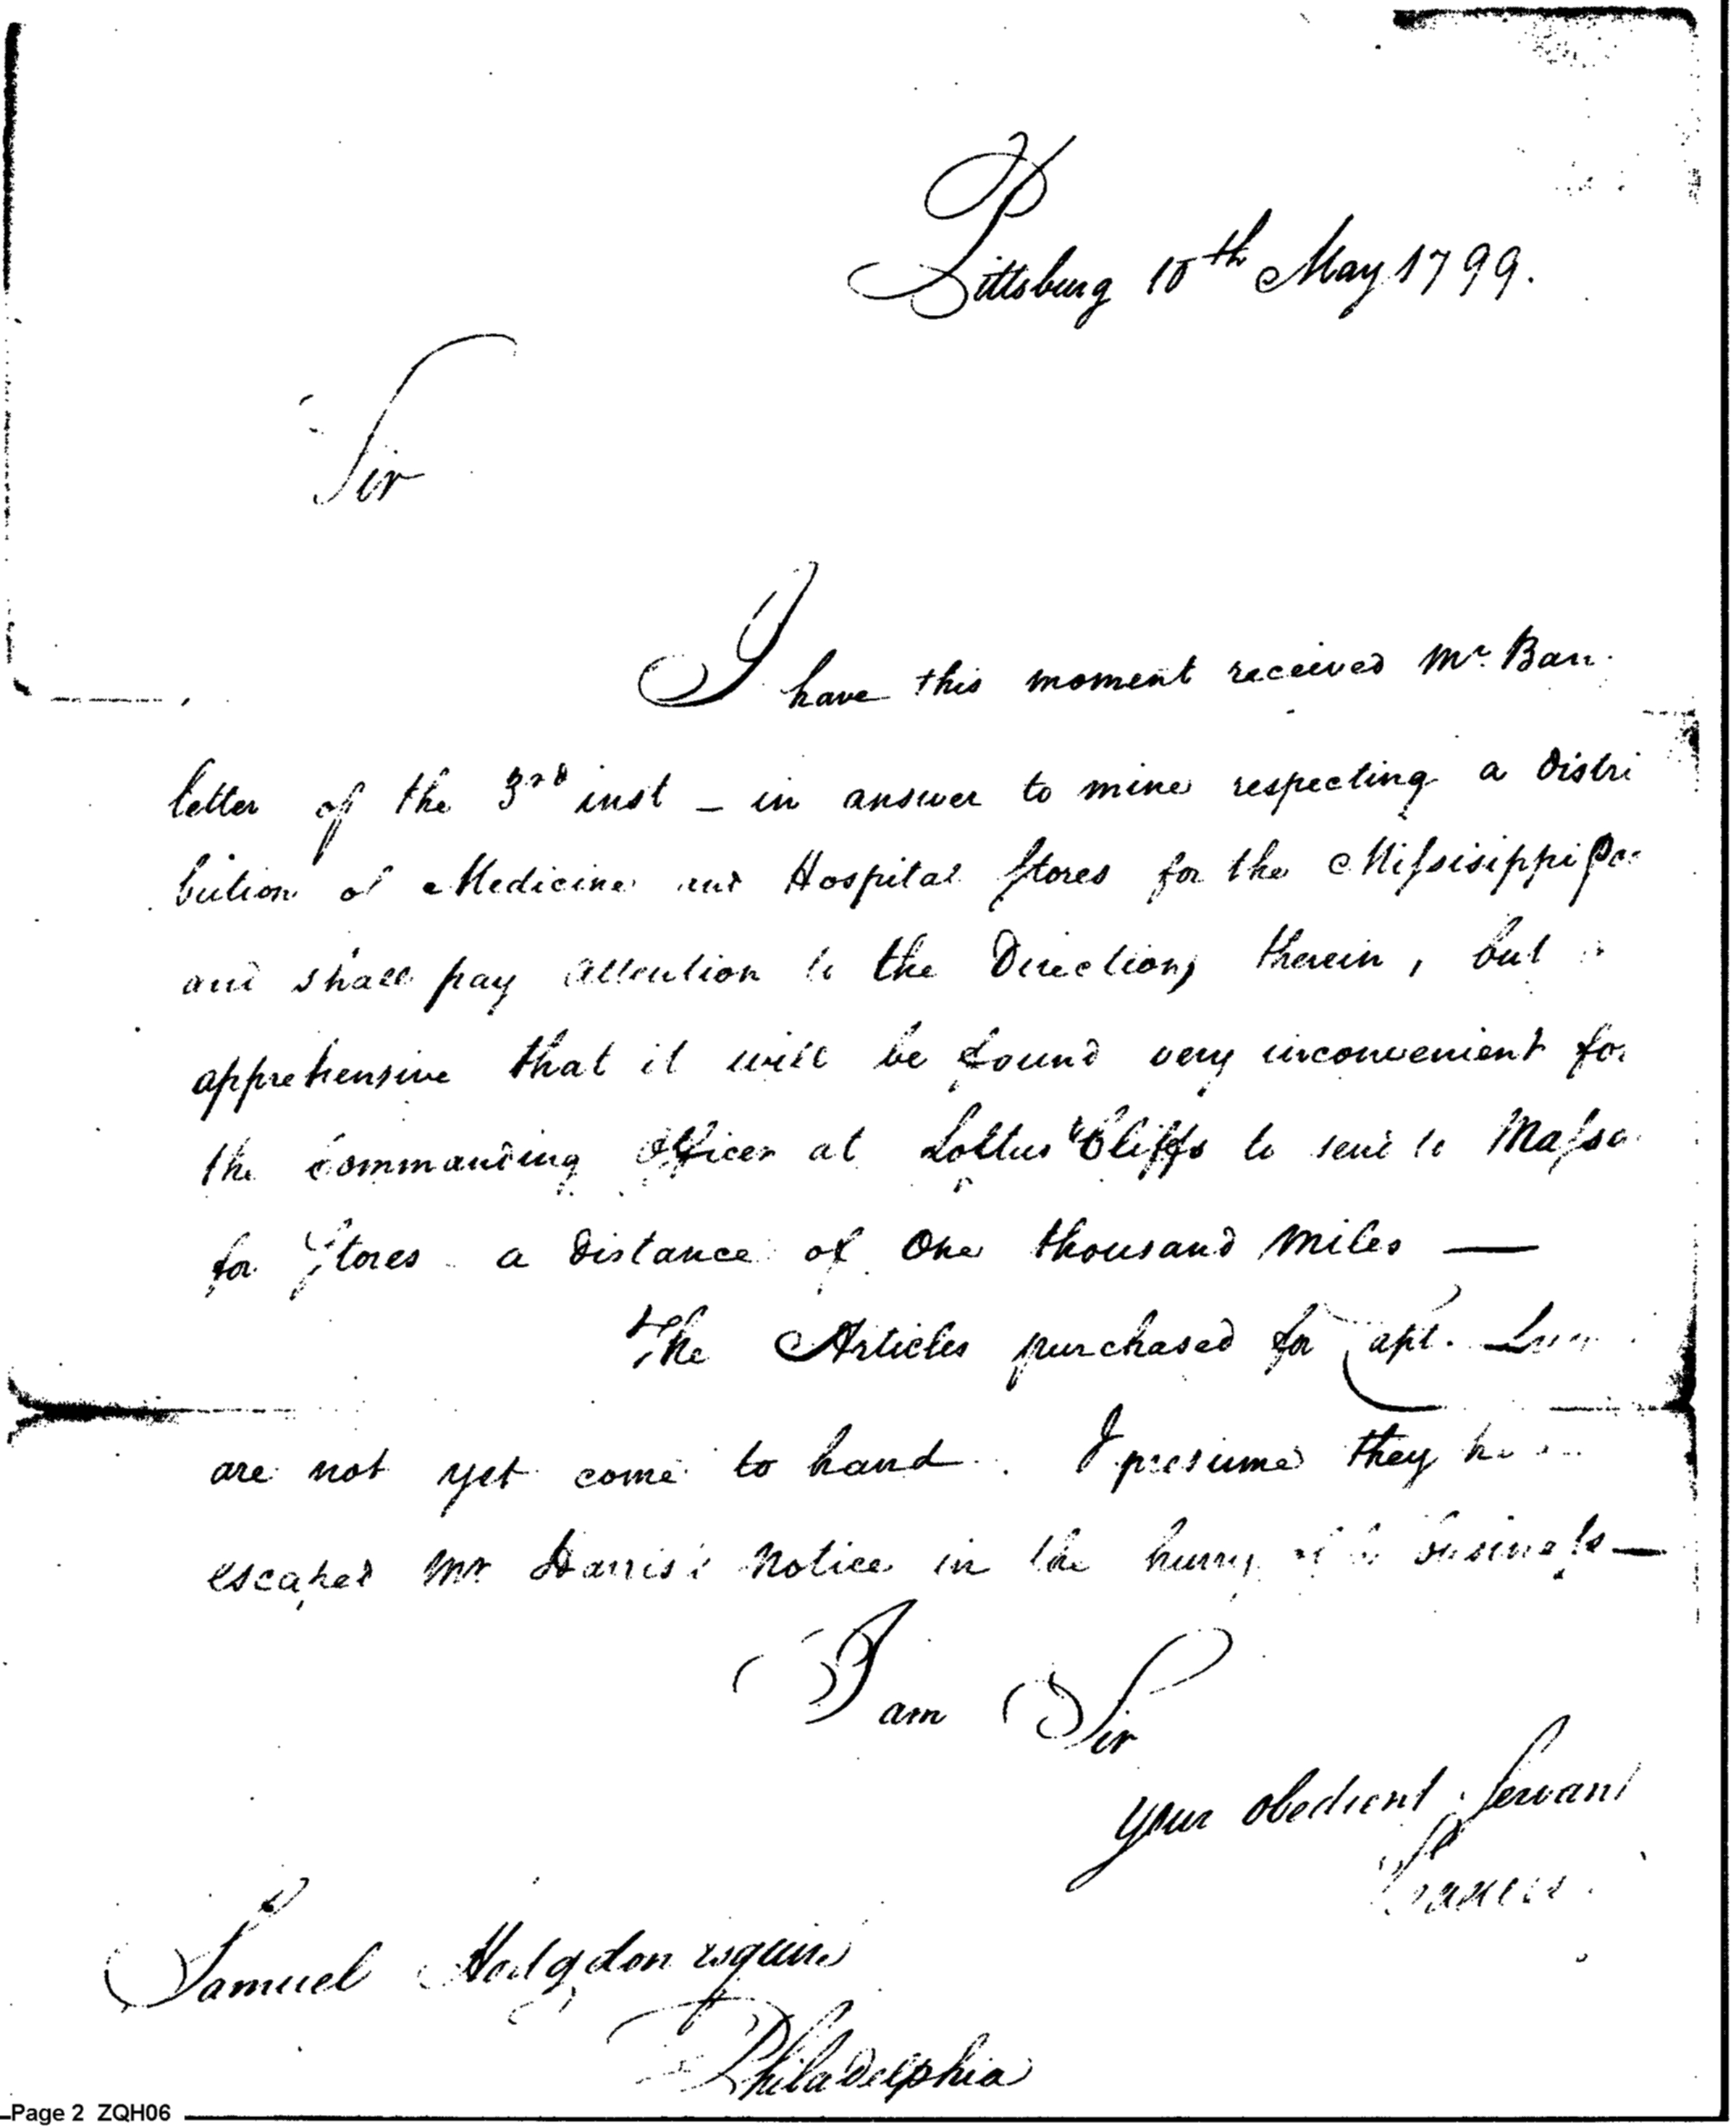 Pittsburg 10th May 1799.
Sir
I have this moment received Mr. Barr
letter of the 3rd inst - in answer to mine respecting a Distri
bution of Medicine and Hospital Stores for the Missisippi Pos
and shall pay attention to the Directions therein, but
apprehensive that it will be found very inconvenient for
the commanding Officer at Loftus Cliffs to send to Massa
for Stores a Distance of One thousand Miles —
The Articles purchased for Capt.
are not yet come to hand. I presume they
escaped Mr Harris's Notice in the hurry of business —
I am Sir
your obedient Servant
Samuel Hodgdon esquire
Philadelphia
Page 2 ZQH06